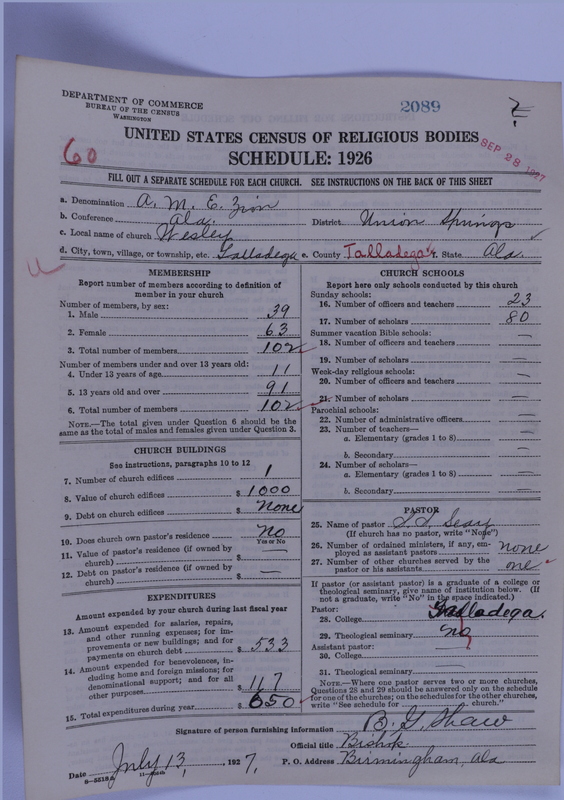 DEPARTMENT OF COMMERCE
BUREAU OF THE CENSUS
WASHINGTON
2089
UNITED STATES CENSUS OF RELIGIOUS BODIES
SEP 28 1927
60
SCHEDULE: 1926
FILL OUT A SEPARATE SCHEDULE FOR EACH CHURCH. SEE INSTRUCTIONS ON THE BACK OF THIS SHEET
a. Denomination A. M. E. Zion
b. Conference Ala. District Union Springs
c. Local name of church Wesley
d. City, town, village, or township, etc. Talladega e. County Talladega f. State Ala.
MEMBERSHIP
Report number of members according to definition of
member in your church
Number of members, by sex:
1. Male 39
2. Female 63
3. Total number of members 102
Number of members under and over 13 years old:
4. Under 13 years of age 11
5. 13 years old and over 91
6. Total number of members 102
NOTE.—The total given under Question 6 should be
same as the total of males and females given under Question 3.
CHURCH BUILDINGS
See instructions, paragraphs 10 to 12
7. Number of church edifices 1
8. Value of church edifices $ 1000
9. Debt on church edifices $ None
10. Does church own pastor's residence No
Yes or No
11. Value of pastor's residence (if owned by
church) $ —
12. Debt on pastor's residence (if owned by
church) $ —
EXPENDITURES
Amount expended by your church during last fiscal year
13. Amount expended for salaries, repairs,
and other running expenses; for im-
provements or new buildings; and for
payments on church debt $ 533
14. Amount expended for benevolences, in-
cluding home and foreign missions; for
denominational support; and for all
other purposes $ 117
15. Total expenditures during year $ 650
CHURCH SCHOOLS
Report here only schools conducted by this church
Sunday schools:
16. Number of officers and teachers 23
17. Number of scholars 80
Summer vacation Bible schools:
18. Number of officers and teachers —
19. Number of scholars —
Week-day religious schools:
20. Number of officers and teachers —
21. Number of scholars —
Parochial schools:
22. Number of administrative officers —
23. Number of teachers—
a. Elementary (grades 1 to 8) —
b. Secondary —
24. Number of scholars—
a. Elementary (grades 1 to 8) —
b. Secondary —
PASTOR
25. Name of pastor
(If church has no pastor, write "None")
26. Number of ordained ministers, if any, em-
ployed as assistant pastors none
27. Number of other churches served by the
pastor or his assistants one
If pastor (or assistant pastor) is a graduate of a college or
theological seminary, give name of institution below. (If
not a graduate, write "No" in the space indicated.)
Pastor:
28. College Talladega
29. Theological seminary no
Assistant pastor:
30. College —
31. Theological seminary —
NOTE.—Where one pastor serves two or more churches,
Questions 28 and 29 should be answered only on the schedule
for one of the churches; on the schedules for the other churches,
write "See schedule for church."
Signature of person furnishing information B. G. Shaw
Official title Bishop
Date July 13, 1927. P. O. Address Birmingham, Ala